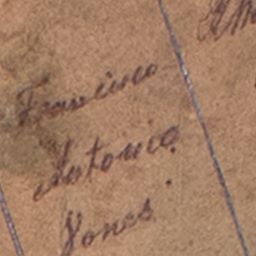 Francisco
Antonio
Jones.